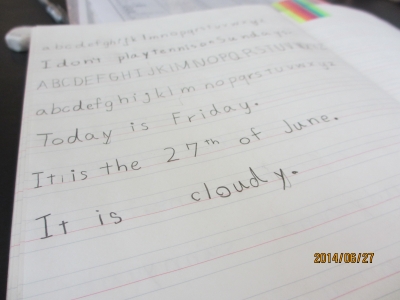 abcdefghijklmnopqrstuvwxyz
I dont play tennis on Sunday.
ABCDEFGHIJKLMNOPQRSTUVW
abcdefghijklmnopqrstuvwxyz
Today is Friday.
It is the 27th of June.
It is cloudy.
2014/06/27